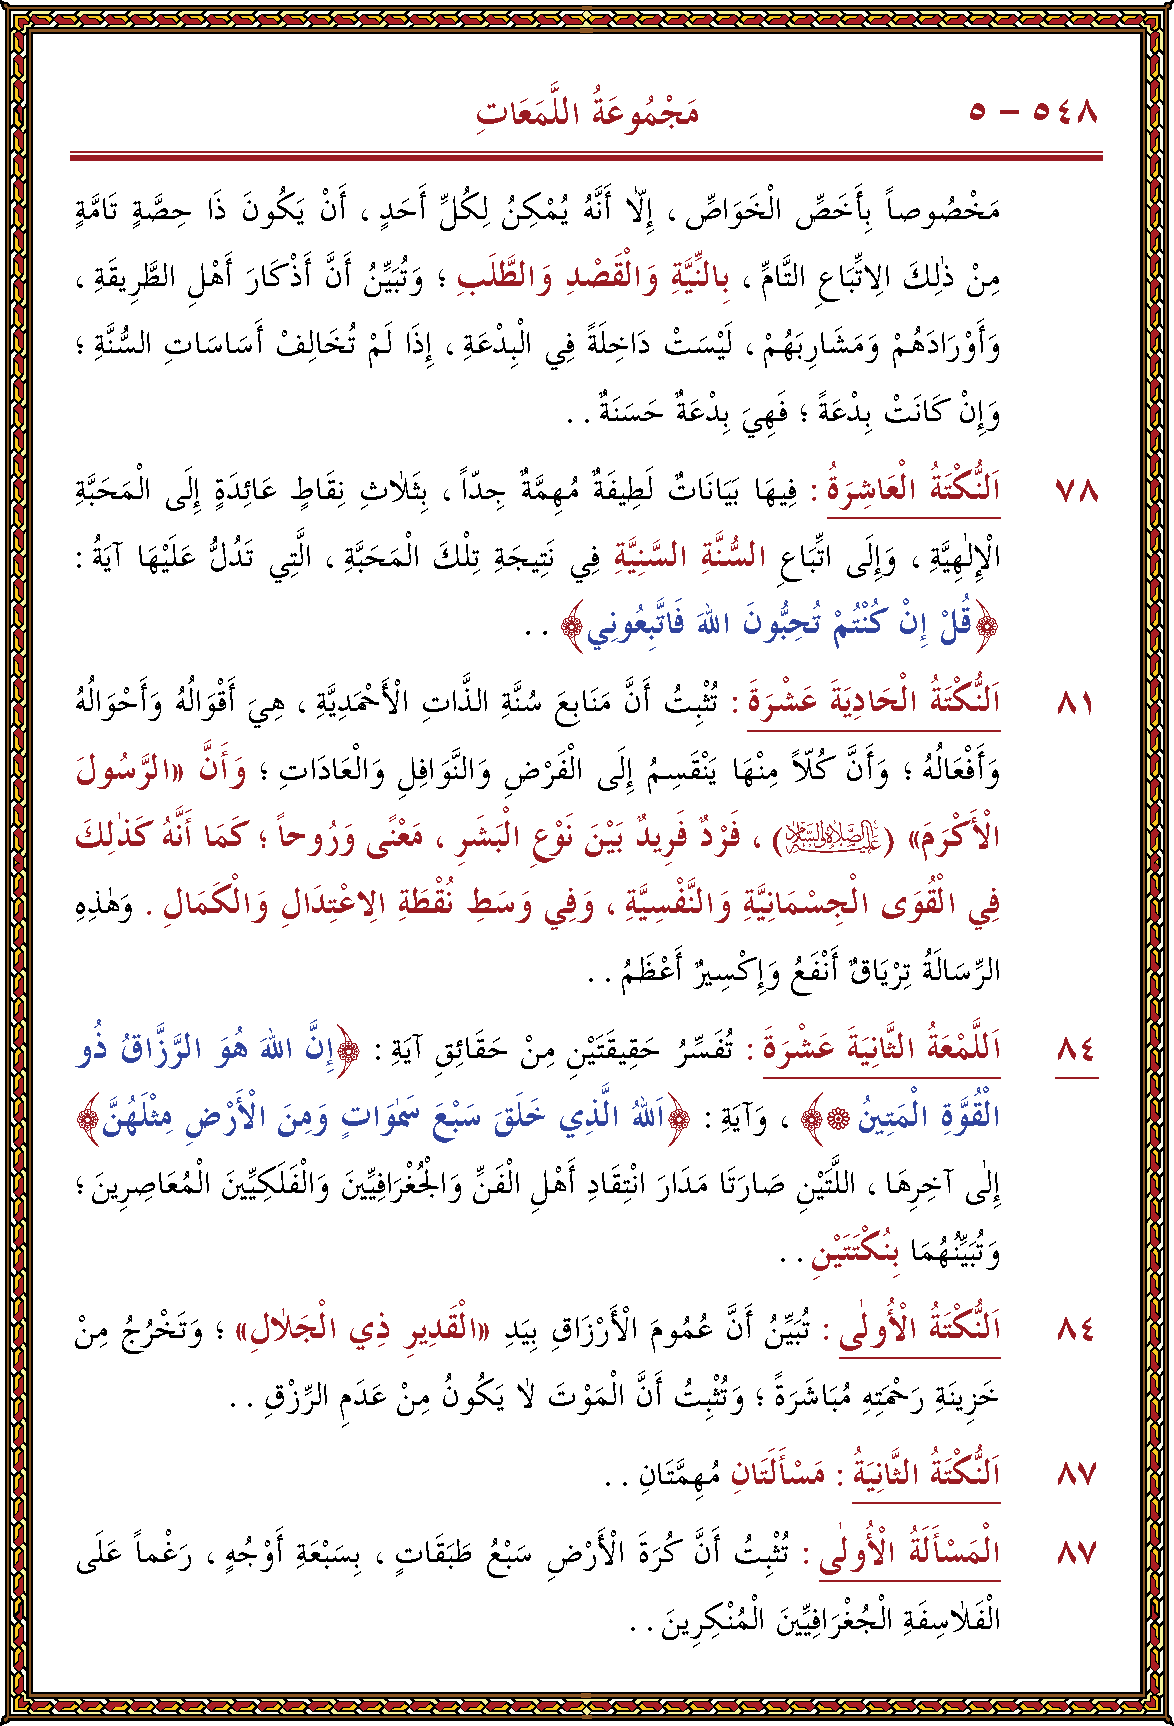 ٥٤٨ – ٥ مَجْمُوعَةُ اللَّمَعَاتِ
مَخْصُوصاً بِأَخَصِّ الْخَوَاصِّ ، إِلَّا أَنَّهُ يُمْكِنُ لِكُلِّ أَحَدٍ ، أَنْ يَكُونَ ذَا حِصَّةٍ تَامَّةٍ
مِنْ ذٰلِكَ الِاتِّبَاعِ التَّامِّ ، بِالنِّيَّةِ وَالْقَصْدِ وَالطَّلَبِ ؛ وَتُبَيِّنُ أَنَّ أَذْكَارَ أَهْلِ الطَّرِيقَةِ ،
وَأَوْرَادَهُمْ وَمَشَارِبَهُمْ ، لَيْسَتْ دَاخِلَةً فِي الْبِدْعَةِ ، إِذَا لَمْ تُخَالِفْ أَسَاسَاتِ السُّنَّةِ ؛
وَإِنْ كَانَتْ بِدْعَةً ؛ فَهِيَ بِدْعَةٌ حَسَنَةٌ . .
٧٨ اَلنُّكْتَةُ الْعَاشِرَةُ : فِيهَا بَيَانَاتٌ لَطِيفَةٌ مُهِمَّةٌ جِدّاً ، بِثَلٰاثِ نِقَاطٍ عَائِدَةٍ إِلَى الْمَحَبَّةِ
الْإِلٰهِيَّةِ ، وَإِلَى اتِّبَاعِ السُّنَّةِ السَّنِيَّةِ فِي نَتِيجَةِ تِلْكَ الْمَحَبَّةِ ، الَّتِي تَدُلُّ عَلَيْهَا آيَةُ :
﴿قُلْ إِنْ كُنْتُمْ تُحِبُّونَ اللهَ فَاتَّبِعُونِي﴾ . .
٨١ اَلنُّكْتَةُ الْحَادِيَةَ عَشْرَةَ : تُثْبِتُ أَنَّ مَنَابِعَ سُنَّةِ الذَّاتِ الْأَحْمَدِيَّةِ ، هِيَ أَقْوَالُهُ وَأَحْوَالُهُ
وَأَفْعَالُهُ ؛ وَأَنَّ كُلّاً مِنْهَا يَنْقَسِمُ إِلَى الْفَرْضِ وَالنَّوَافِلِ وَالْعَادَاتِ ؛ وَأَنَّ «الرَّسُولَ
الْأَكْرَمَ» (عَلَيْهِ الصَّلَاةُ وَالسَّلَامُ) ، فَرْدٌ فَرِيدٌ بَيْنَ نَوْعِ الْبَشَرِ ، مَعْنًى وَرُوحاً ؛ كَمَا أَنَّهُ كَذٰلِكَ
فِي الْقُوَى الْجِسْمَانِيَّةِ وَالنَّفْسِيَّةِ ، وَفِي وَسَطِ نُقْطَةِ الِاعْتِدَالِ وَالْكَمَالِ . وَهٰذِهِ
الرِّسَالَةُ تِرْيَاقٌ أَنْفَعُ وَإِكْسِيرٌ أَعْظَمُ . .
٨٤ اَللَّمْعَةُ الثَّانِيَةَ عَشْرَةَ : تُفَسِّرُ حَقِيقَتَيْنِ مِنْ حَقَائِقِ آيَةِ : ﴿إِنَّ اللهَ هُوَ الرَّزَّاقُ ذُو
الْقُوَّةِ الْمَتِينُ ۝﴾ ، وَآيَةِ : ﴿اَللهُ الَّذِي خَلَقَ سَبْعَ سَمٰوَاتٍ وَمِنَ الْأَرْضِ مِثْلَهُنَّ﴾
إِلٰى آخِرِهَا ، اللَّتَيْنِ صَارَتَا مَدَارَ انْتِقَادِ أَهْلِ الْفَنِّ وَالْجُغْرَافِيِّينَ وَالْفَلَكِيِّينَ الْمُعَاصِرِينَ ؛
وَتُبَيِّنُهُمَا بِنُكْتَتَيْنِ . .
٨٤ اَلنُّكْتَةُ الْأُولٰى : تُبَيِّنُ أَنَّ عُمُومَ الْأَرْزَاقِ بِيَدِ «الْقَدِيرِ ذِي الْجَلٰالِ» ؛ وَتَخْرُجُ مِنْ
خَزِينَةِ رَحْمَتِهِ مُبَاشَرَةً ؛ وَتُثْبِتُ أَنَّ الْمَوْتَ لٰا يَكُونُ مِنْ عَدَمِ الرِّزْقِ . .
٨٧ اَلنُّكْتَةُ الثَّانِيَةُ : مَسْأَلَتَانِ مُهِمَّتَانِ . .
٨٧ الْمَسْأَلَةُ الْأُولٰى : تُثْبِتُ أَنَّ كُرَةَ الْأَرْضِ سَبْعُ طَبَقَاتٍ ، بِسَبْعَةِ أَوْجُهٍ ، رَغْماً عَلَى
الْفَلٰاسِفَةِ الْجُغْرَافِيِّينَ الْمُنْكِرِينَ . .